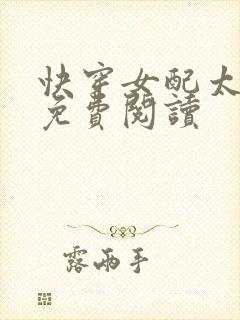 快穿女配太
免費閱讀
露兩手